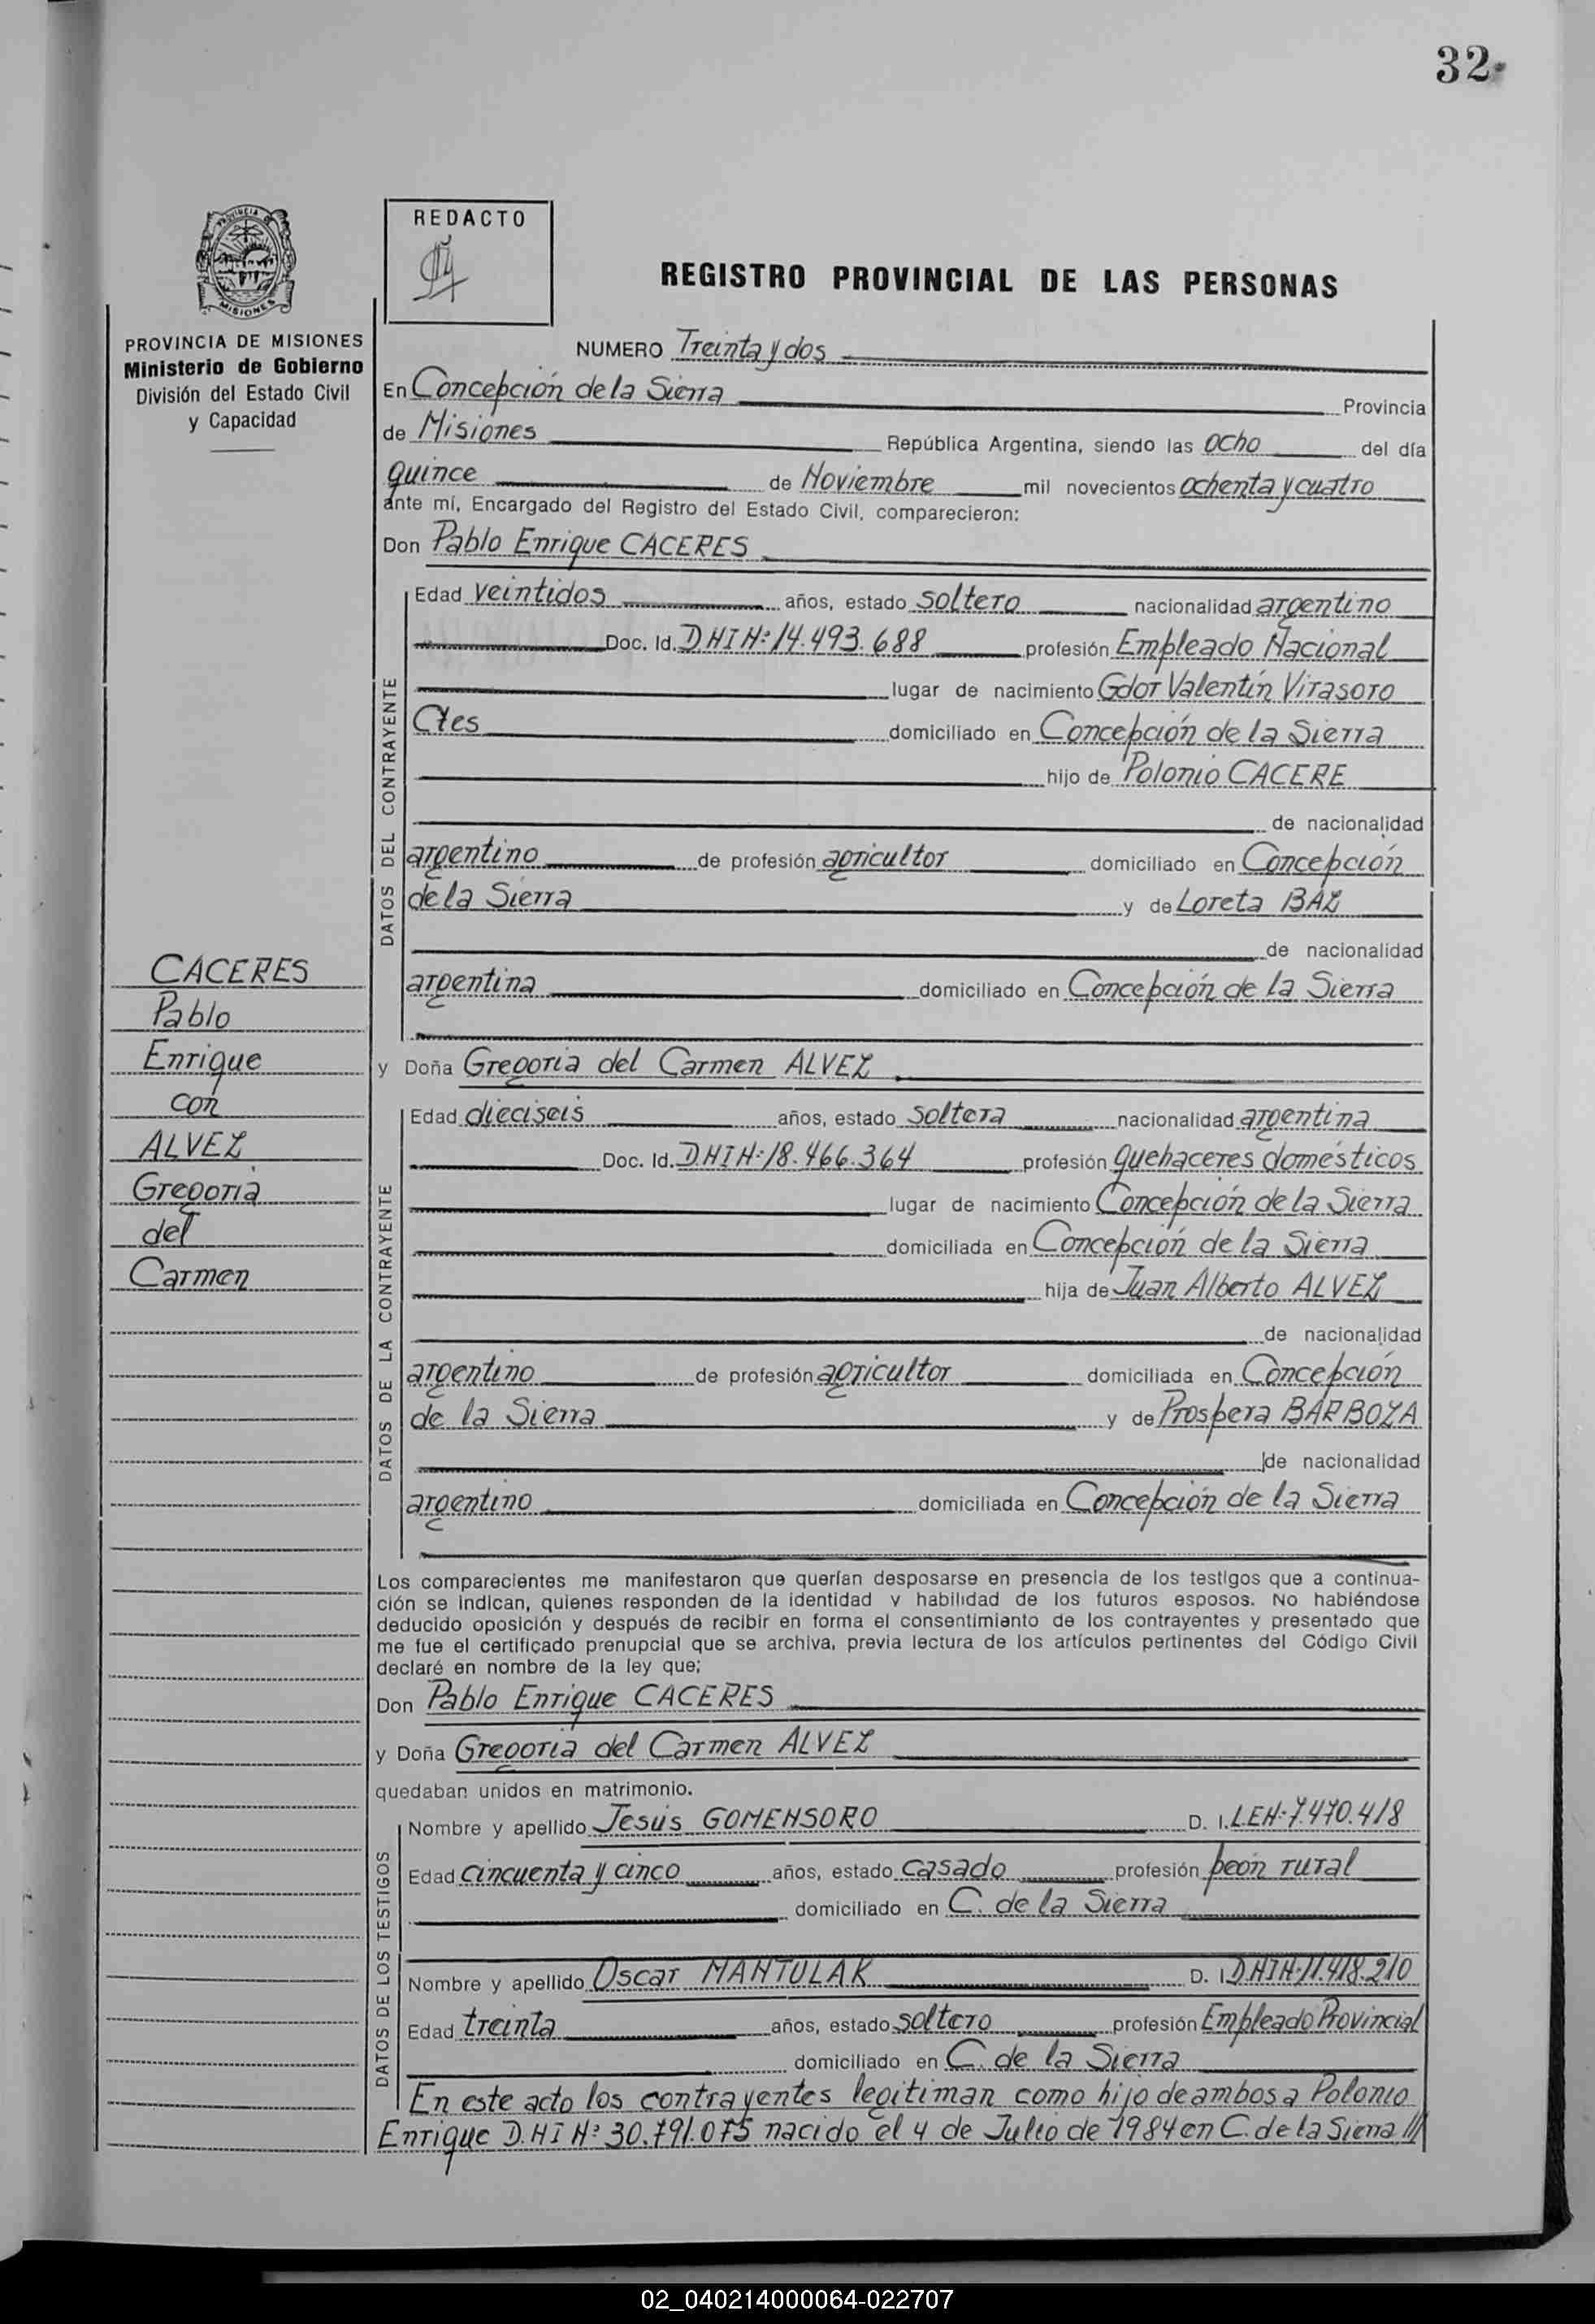 32
PROVINCIA DE
MISIONES
REDACTO
REGISTRO PROVINCIAL DE LAS PERSONAS
PROVINCIA DE MISIONES
Ministerio de Gobierno
División del Estado Civil
y Capacidad
NUMERO Treinta y dos
En Concepción de la Sierra Provincia
de Misiones República Argentina, siendo las ocho del día
quince de Noviembre mil novecientos ochenta y cuatro
ante mí, Encargado del Registro del Estado Civil, comparecieron:
Don Pablo Enrique CACERES
DATOS DEL CONTRAYENTE
Edad veintidos años, estado soltero nacionalidad argentino
Doc. Id. DNI Nº 14.493.688 profesión Empleado Nacional
lugar de nacimiento Gdor Valentín Virasoro
Ctes domiciliado en Concepción de la Sierra
hijo de Polonio CACERE
de nacionalidad
argentino de profesión agricultor domiciliado en Concepción
de la Sierra y de Loreta BAZ
de nacionalidad
argentina domiciliado en Concepción de la Sierra
CACERES
Pablo
Enrique
con
ALVEZ
Gregoria
del
Carmen
y Doña Gregoria del Carmen ALVEZ
DATOS DE LA CONTRAYENTE
Edad dieciseis años, estado soltera nacionalidad argentina
Doc. Id. DNI Nº 18.466.364 profesión quehaceres domésticos
lugar de nacimiento Concepción de la Sierra
domiciliada en Concepción de la Sierra
hija de Juan Alberto ALVEZ
de nacionalidad
argentino de profesión agricultor domiciliada en Concepción
de la Sierra y de Prospera BARBOZA
de nacionalidad
argentino domiciliada en Concepción de la Sierra
Los comparecientes me manifestaron que querían desposarse en presencia de los testigos que a continua-
ción se indican, quienes responden de la identidad y habilidad de los futuros esposos. No habiéndose
deducido oposición y después de recibir en forma el consentimiento de los contrayentes y presentado que
me fue el certificado prenupcial que se archiva, previa lectura de los artículos pertinentes del Código Civil
declaré en nombre de la ley que;
Don Pablo Enrique CACERES
y Doña Gregoria del Carmen ALVEZ
quedaban unidos en matrimonio.
DATOS DE LOS TESTIGOS
Nombre y apellido Jesús GOMENSORO D. I. LE Nº 7.470.418
Edad cincuenta y cinco años, estado casado profesión peón rural
domiciliado en C. de la Sierra
Nombre y apellido Oscar MANTULAK D. I. DNI Nº 11.418.210
Edad treinta años, estado soltero profesión Empleado Provincial
domiciliado en C. de la Sierra
En este acto los contrayentes legitiman como hijo de ambos a Polonio
Enrique DNI Nº 30.791.075 nacido el 4 de Julio de 1984 en C. de la Sierra //
02_040214000064-022707